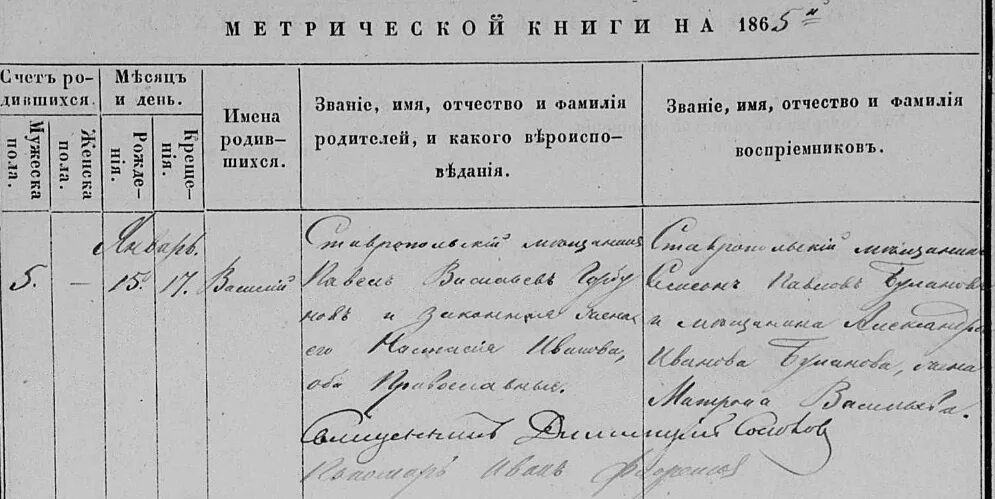 МЕТРИЧЕСКОЙ КНИГИ НА 1865й
Счетъ ро-
дившихся.
Мужеска
пола.
Женска
пола.
Мѣсяцъ
и день.
Рожде-
нія.
Креще-
нія.
Имена
родив-
шихся.
Званіе, имя, отчество и фамилія
родителей, и какого вѣроиспо-
вѣданія.
Званіе, имя, отчество и фамилія
воспріемниковъ.
Январь.
5.
—
15.
17.
Василій
Ставропольскій мѣщанинъ
Павелъ Васильевъ Горбу
новъ и законная жена
его Настасія Иванова,
оба Православные.
Ставропольскій мѣщанинъ
Павловъ Булановъ
и мѣщанина Александра
Иванова Буланова, жена
Матрона Васильева.
Священникъ Димитрій
Пономарь Иванъ